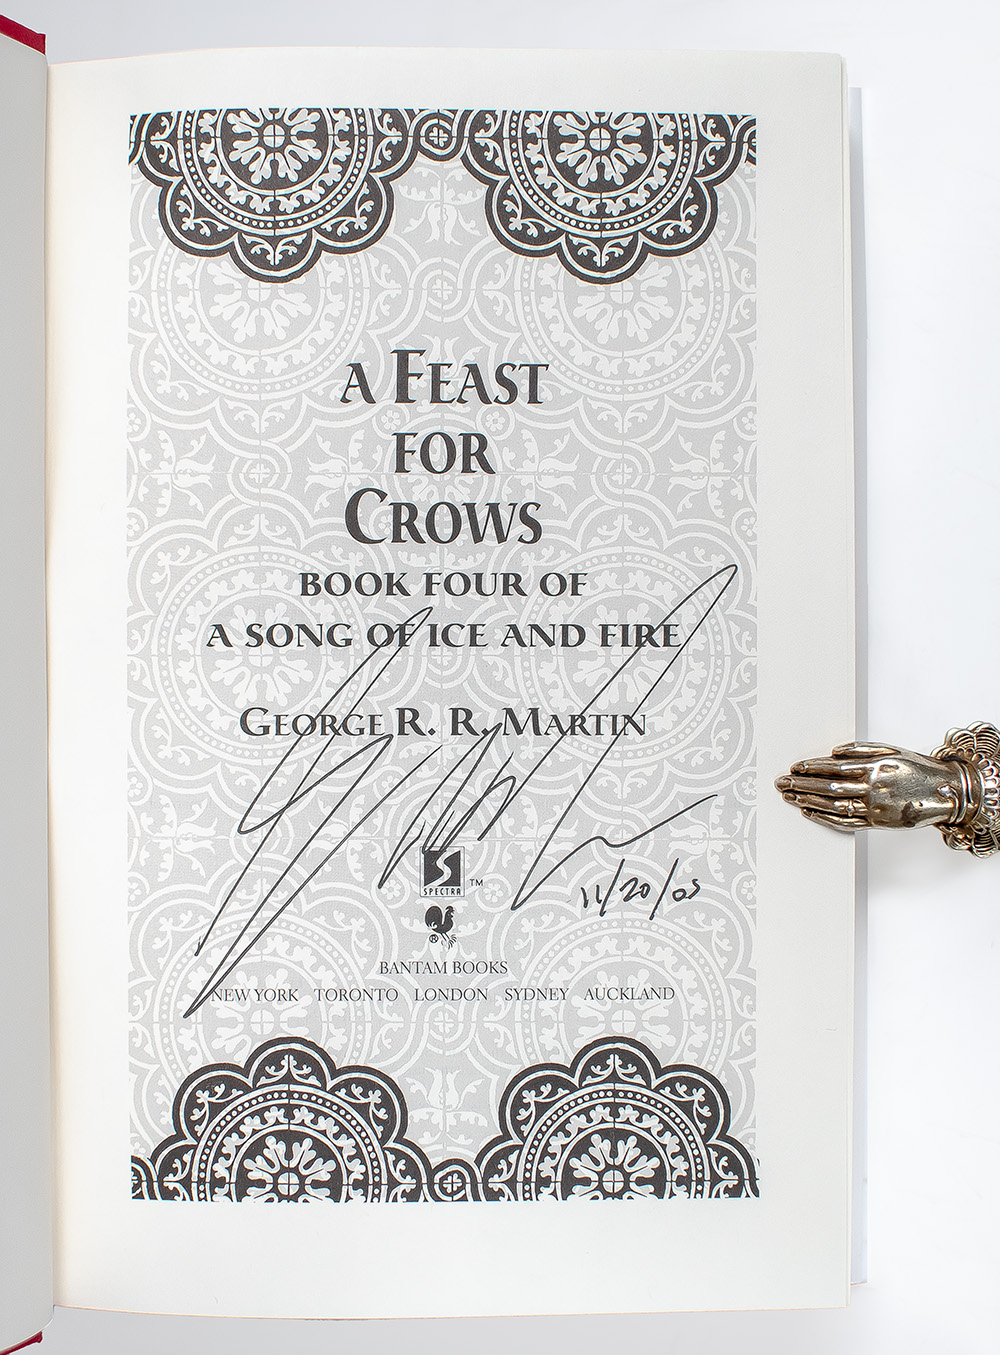 A FEAST
FOR
CROWS
BOOK FOUR OF
A SONG OF ICE AND FIRE
GEORGE R. R. MARTIN
SPECTRA ™
11/20/05
®
BANTAM BOOKS
NEW YORK TORONTO LONDON SYDNEY AUCKLAND